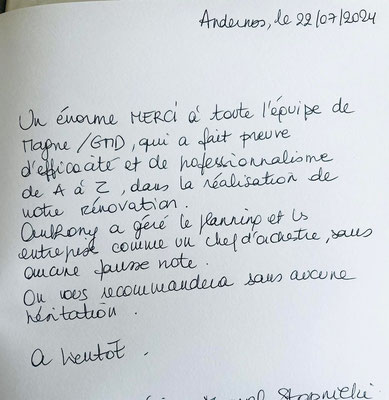 Andernos, le 22/07/2024
Un énorme MERCI à toute l'équipe de
Magne/GMD, qui a fait preuve
d'efficacité et de professionnalisme
de A à Z, dans la réalisation de
notre rénovation.
a géré le planning et ls
entreprise comme un chef d'orchestre, sans
aucune fausse note.
On vous recommandera sans aucune
hésitation.
A bientôt.